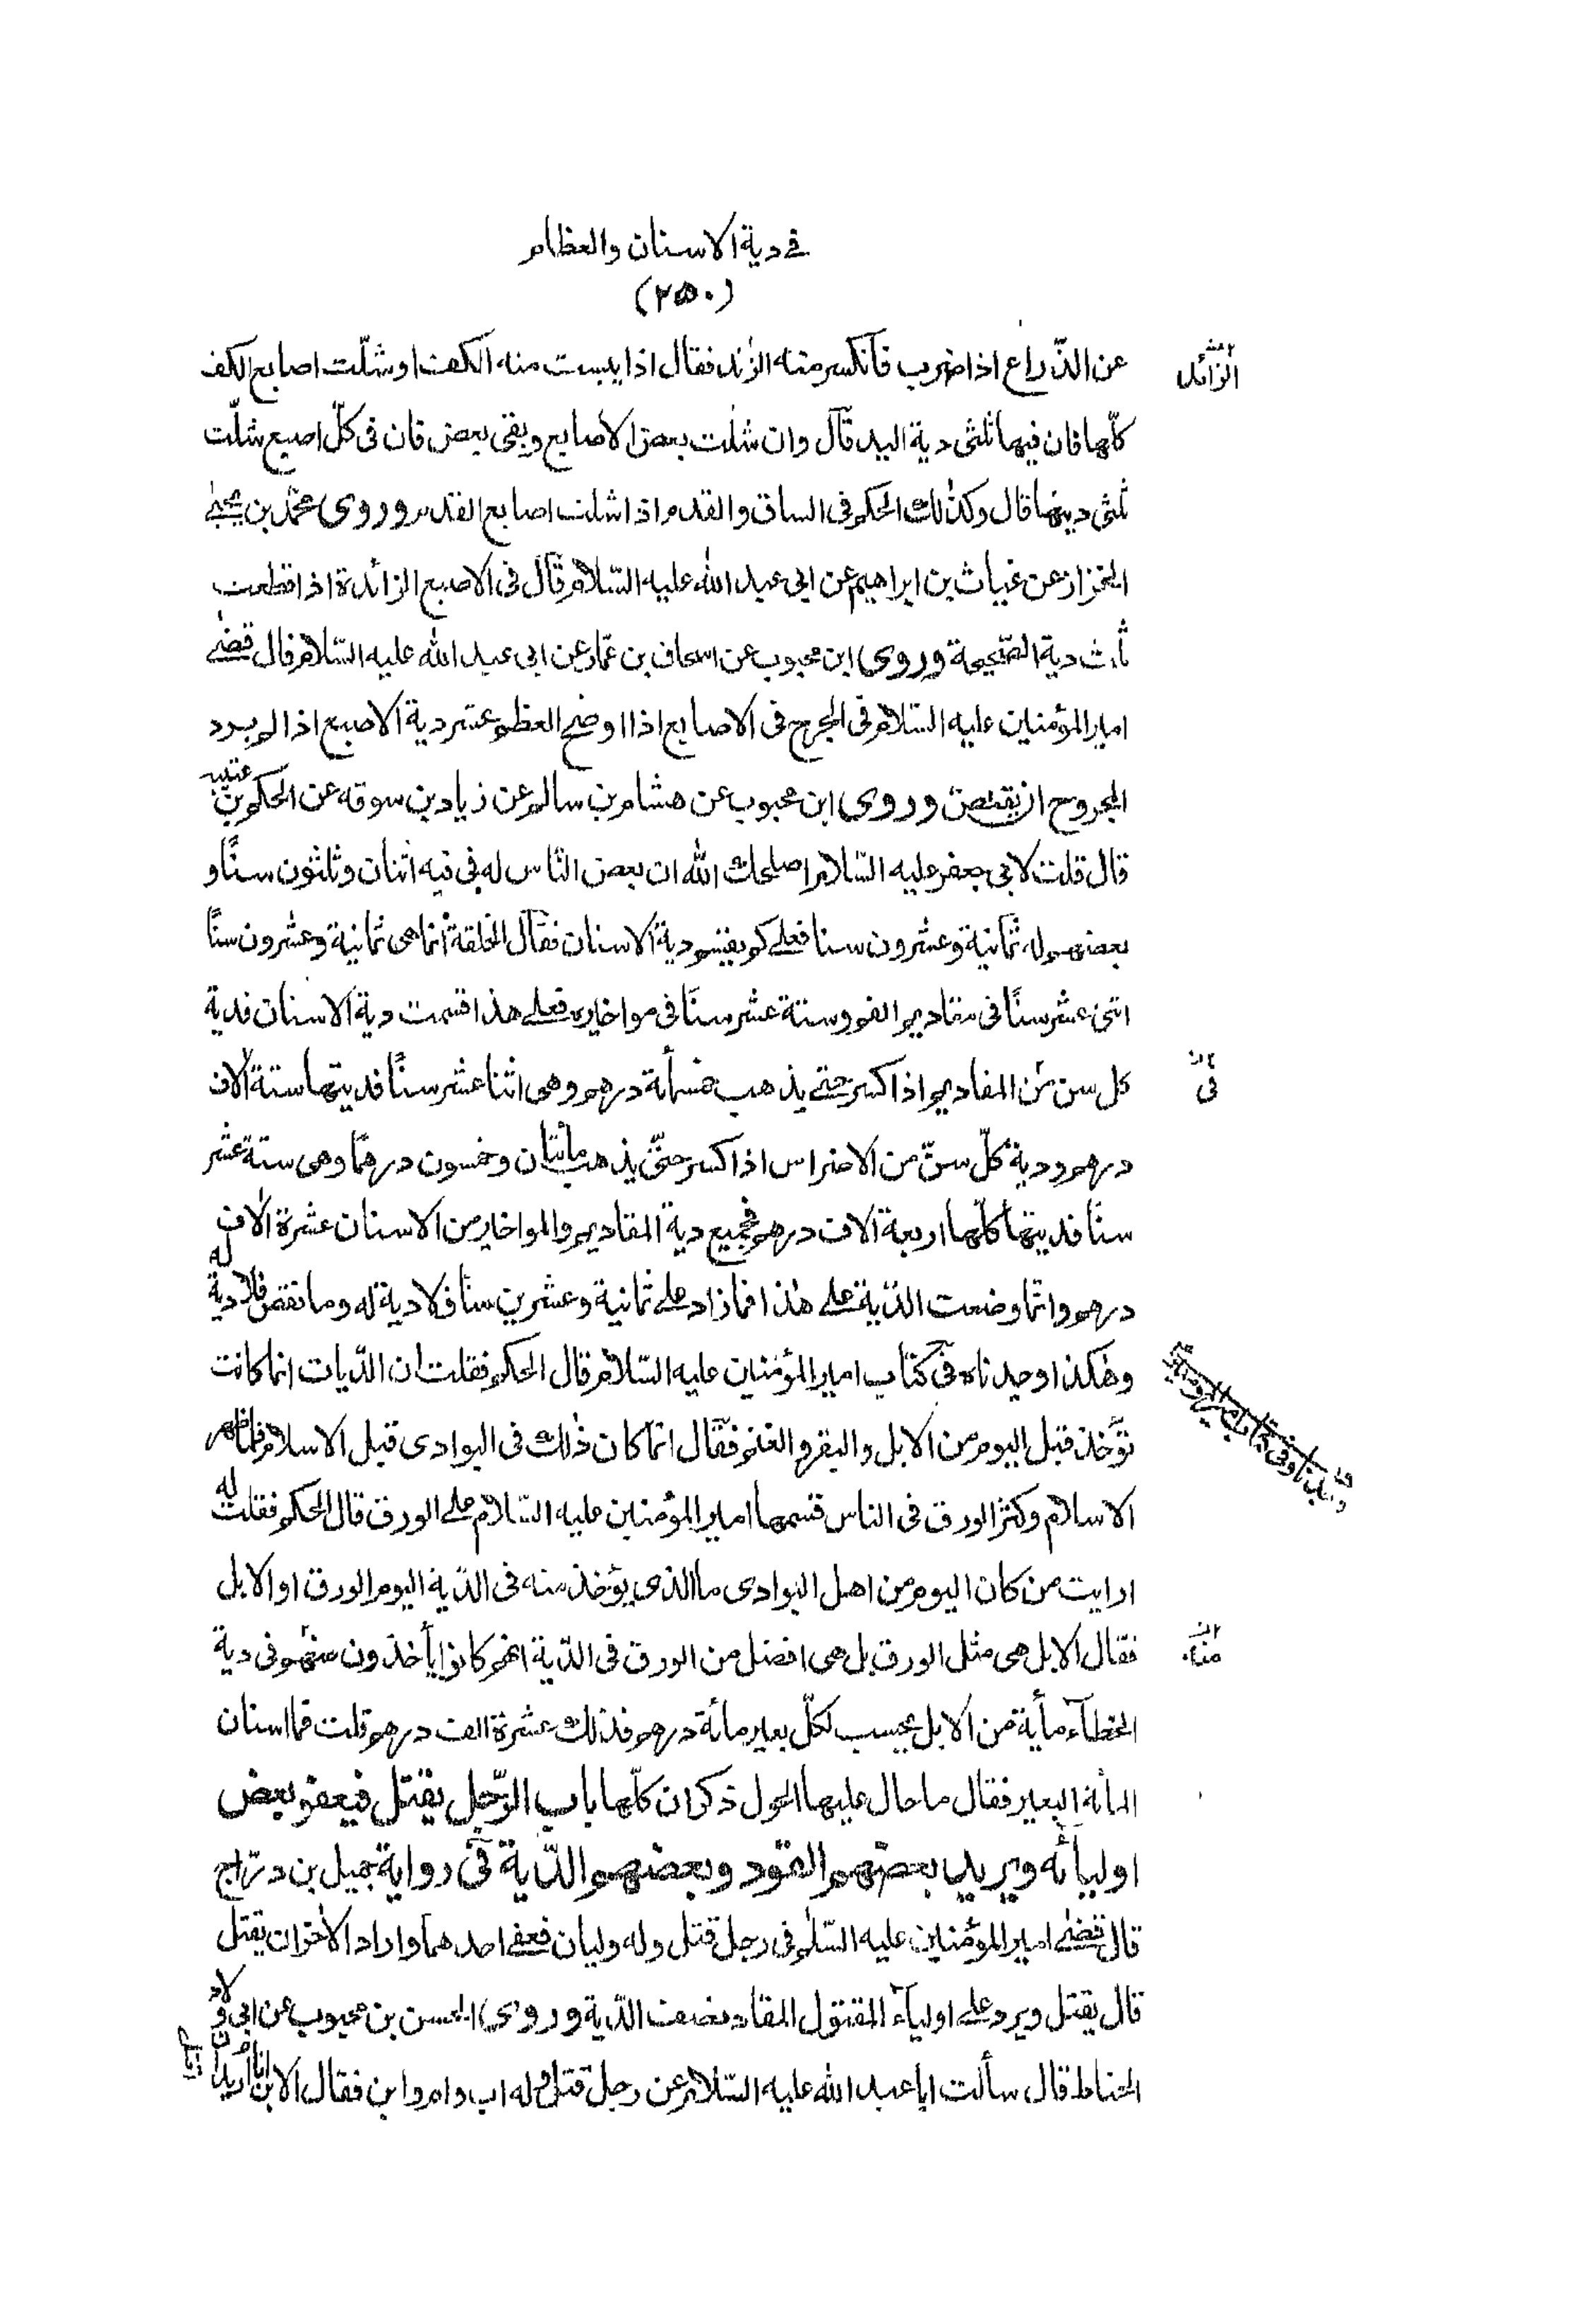 في دية الاسنان والعظام
(٢٥٠)
عن الذّراع اذا ضرب فأنكسر منه الزّند فقال اذا يبست منه الكف او شلّت اصابع الكف
كلّها فان فيها ثلثى دية اليد قال وان شلّت بعض الاصابع وبقى بعض فان فى كلّ اصبع شلّت
ثلثى ديتها قال وكذلك الحكم فى الساق والقدم اذا شلت اصابع القدم وروى محمّد بن يحيى
الخزاز عن غياث بن ابراهيم عن ابى عبد الله عليه السّلام قال فى الاصبع الزائدة اذا قطعت
ثلث دية الصّحيحة وروى ابن محبوب عن اسحاق بن عمّار عن ابى عبد الله عليه السّلام قال قضى
امير المؤمنين عليه السّلام فى الجرح فى الاصابع اذا اوضح العظم عشر دية الاصبع اذا لم يرد
المجروح ان يقتص وروى ابن محبوب عن هشام بن سالم عن زياد بن سوقه عن الحكم بن عتيبه
قال قلت لابى جعفر عليه السّلام اصلحك الله ان بعض النّاس له فى فيه اثنان وثلثون سنًّا و
بعضهم له ثمانية وعشرون سنا فعلى كم يقسم دية الاسنان فقال الخلقة انّما هى ثمانية وعشرون سنًّا
اثنى عشر سنًّا فى مقاديم الفم وستة عشر سنًّا فى مواخيره فعلى هذا قسمت دية الاسنان فدية
كل سن من المقاديم اذا كسر حتى يذهب خمسمأة درهم وهى اثنا عشر سنًّا فديتها ستة الاف
درهم ودية كلّ سنّ من الاضراس اذا كسر حتّى يذهب مأتان وخمسون درهمًا وهى ستة عشر
سنًّا فديتها كلّها اربعة الاف درهم فجميع دية المقاديم والمواخير من الاسنان عشرة الاف
درهم وانّما وضعت الدّية على هذا فما زاد على ثمانية وعشرين سنًّا فلا دية له وما نقص فلا دية له
وهكذا وجدناه فى كتاب امير المؤمنين عليه السّلام قال الحكم فقلت ان الدّيات انما كانت
تؤخذ قبل اليوم من الابل والبقر والغنم فقال انّما كان ذلك فى البوادى قبل الاسلام فلما ظهر
الاسلام وكثر الورق فى الناس قسمها امير المؤمنين عليه السّلام على الورق قال الحكم فقلت له
ارايت من كان اليوم من اهل البوادى ما الذى يؤخذ منه فى الدّية اليوم الورق او الابل
فقال الابل هى مثل الورق بل هى افضل من الورق فى الدّية انهم كانوا يأخذون منهم فى دية
الخطأء مأية من الابل يحسب لكلّ بعير مائة درهم فذلك عشرة الف درهم قلت فما اسنان
المأئة البعير فقال ما حال عليها الحول ذكران كلّها باب الرّجل يقتل فيعفو بعض
اوليائه ويريد بعضهم القود وبعضهم الدّية فى رواية جميل بن درّاج
قال قضى امير المؤمنين عليه السّلم فى رجل قتل وله وليان فعفى احدهما واراد الاخر ان يقتل
قال يقتل ويرد على اولياء المقتول المقاد نصف الدّية وروى الحسن بن محبوب عن ابى ولاد
الحناط قال سألت ابا عبد الله عليه السّلام عن رجل قتل وله اب وام وابن فقال الابن انا اريد ان
الزائد
فى